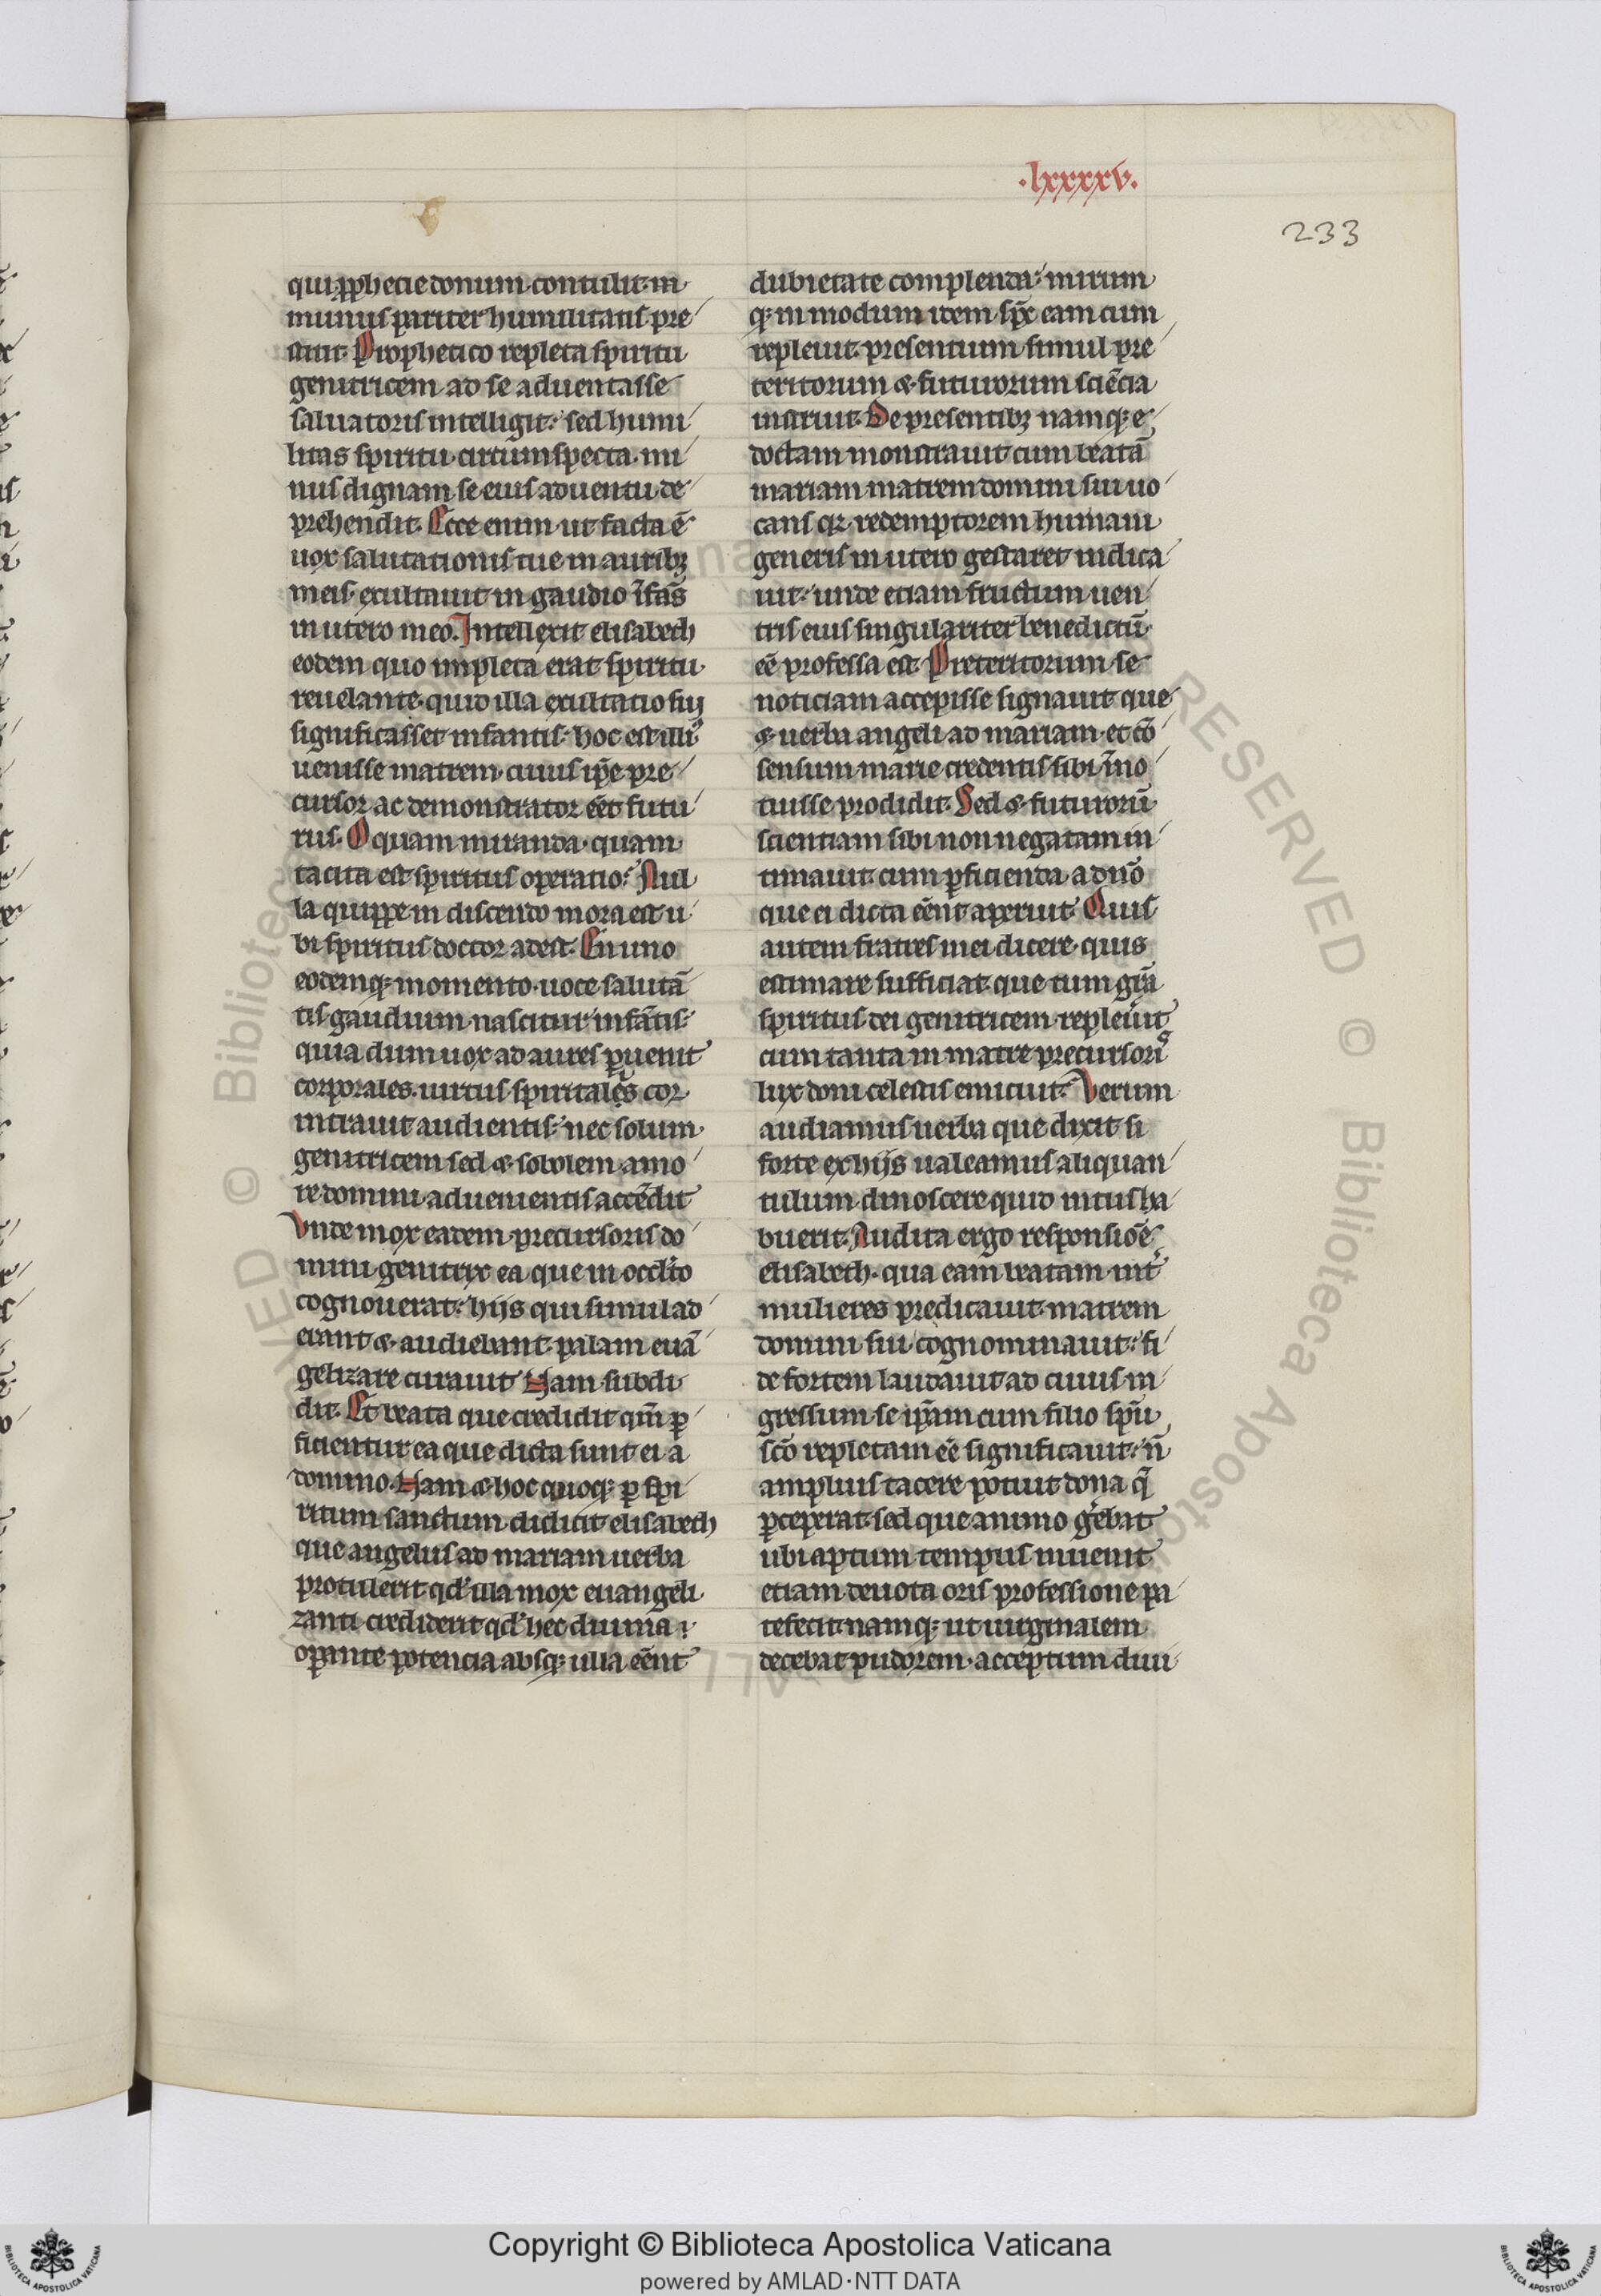 .lxxxxv.
233
qui ꝓphecie donum contulit in
munus pariter humilitatis pre
stitit. Prophetico repleta spiritu
genitricem ad se aduentasse
saluatoris intelligit: sed humi
litas spiritu circumspecta. mi
nus dignam se eius aduentu de
prehendit. Ecce enim ut facta ē
uox salutationis tue in auribꝫ
meis. exultauit in gaudio īfās
in utero meo. Intellexit elisabeth
eodem quo impleta erat spiritu
reuelante. quid illa exultatio sui
significasset infantis. hoc est illi᷒
uenisse matrem. cuius ip̄e pre
cursor ac demonstrator eēt futu
rus. O quam miranda. quam
tacita est spiritus operatio. Nul
la quippe in discendo mora est u
bi spiritus doctor adest. En uno
eodemqꝫ momento. uoce salutā
tis gaudium nascitur infātis.
quia dum uox ad aures ꝑuenit
corporales. uirtus spiritalis cor
intrauit audientis. nec solum
genitricem sed ⁊ sobolem amo
re domini aduenientis accēdit
Vnde mox eadem precursoris do
mini genitrix ea que in occl̄to
cognouerat: hijs qui simul ad
erant ⁊ audiebant. palam euā
gelizare curauit Nam subdi
dit. Et beata que credidit qm̄ ꝑ
ficientur ea que dicta sunt ei a
domino. Nam ⁊ hoc quoqꝫ ꝑ spi
ritum sanctum didicit elisabeth
que angelus ad mariam uerba
protulerit qd' illa mox euangeli
zanti crediderit qd' hec diuina
oꝑante potencia absqꝫ ulla eēnt
dubietate complenda: mirum
qꝫ in modum item sp̄c eam cum
repleuit. presentium simul pre
teritorum ⁊ futurorum sciēcia
instruit. De presentibꝫ namqꝫ e
doctam monstrauit cum beatā
mariam matrem domini sui uo
cans qꝛ redemptorem humani
generis in utero gestaret indica
uit. unde etiam fructum uen
tris eius singulariter benedictū
eē professa est. Preteritorum se
noticiam accepisse signauit que
⁊ uerba angeli ad mariam. et cō
sensum marie credentis sibi īno
tuisse prodidit. Sed ⁊ futurorū
scientiam sibi non negatam in
timauit. cum ꝑficienda a dn̄o
que ei dicta eēnt aperuit. Quis
autem fratres mei dicere. quis
estimare sufficiat. que tum gr̄a
spiritus dei genitricem repleuit
cum tanta in matre precursori᷒
lux doni celestis emicuit. Verum
audiamus uerba que dixit si
forte ex hijs ualeamus aliquan
tulum dinoscere quid intus ha
buerit. Audita ergo responsiōe
elisabeth. qua eam beatam int᷑
mulieres predicauit. matrem
domini sui cognominauit: fi
de fortem laudauit ad cuius in
gressum se ip̄am cum filio sp̄u
sc̄o repletam eē significauit: n̄
amplius tacere potuit dona q̄
ꝑceperat. sed que animo g̓ebat
ubi aptum tempus inuenit
etiam deuota oris professione pa
tefecit. namqꝫ ut uirginalem
decebat pudorem. acceptum diui
Copyright © Biblioteca Apostolica Vaticana
powered by AMLAD·NTT DATA